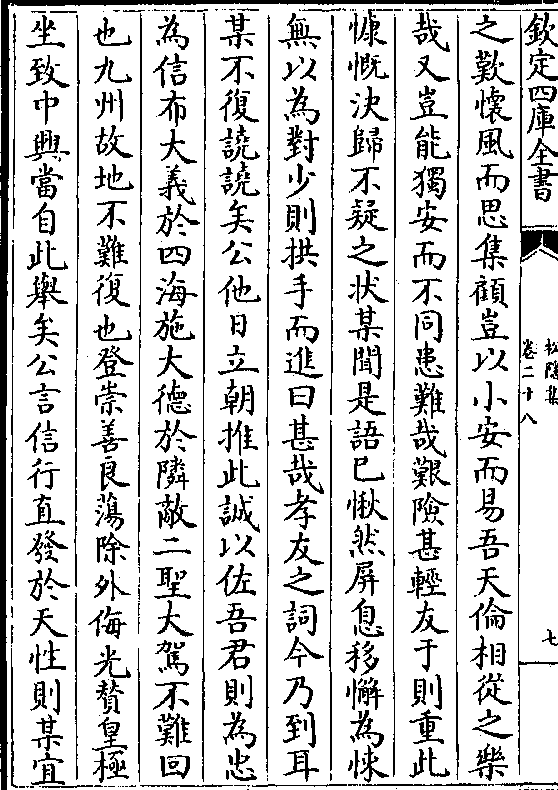 欽定四庫全書
松隱集
卷二十八
七
之歎懷風而思集顧豈以小安而易吾天倫相從之樂
哉又豈能獨安而不同患難哉艱險甚輕友于則重此
慷慨決歸不疑之状某聞是語已愀然屏息移懈為悚
無以為對少則拱手而進曰甚哉孝友之詞今乃到耳
某不復譊譊矣公他日立朝推此誠以佐吾君則為忠
為信布大義於四海施大德於隣敵二聖大駕不難回
也九州故地不難復也登崇善良蕩除外侮光賛皇極
坐致中興當自此舉矣公言信行直發於天性則某宜